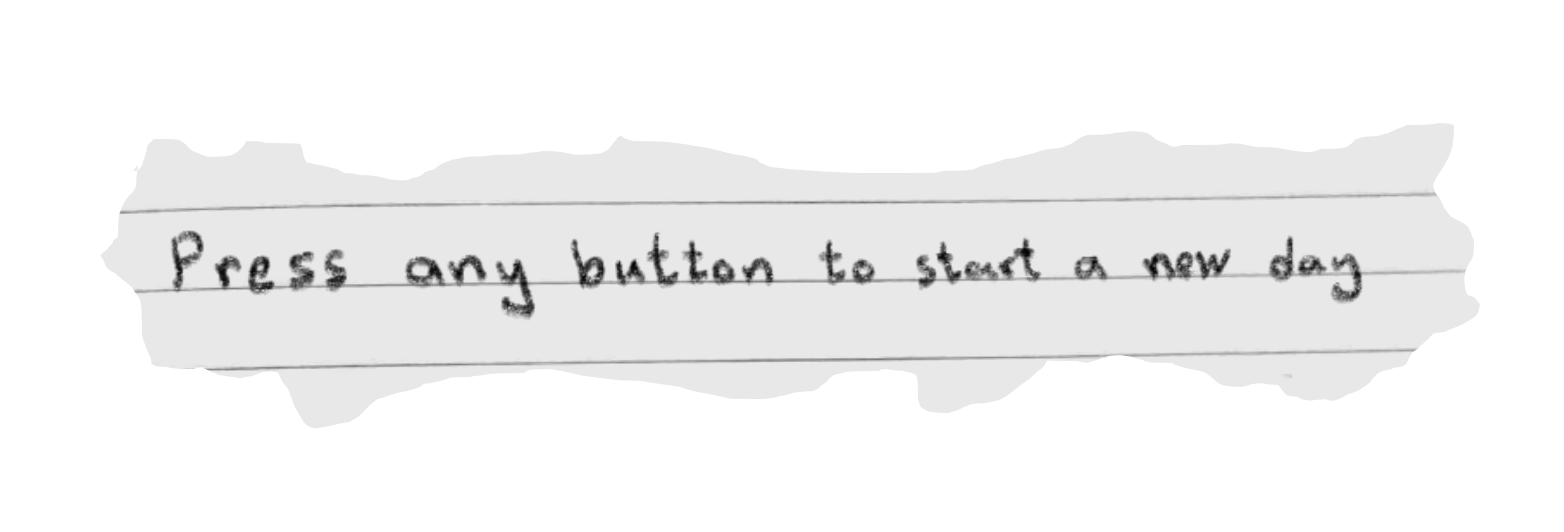 Press any button to start a new day